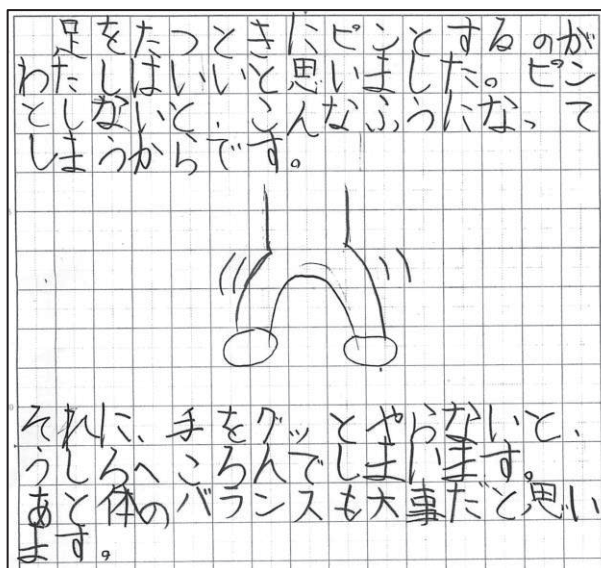 足をたつときにピンとするのが
わたしはいいと思いました。ピン
としないと、こんなふうになって
しまうからです。
それに、手をグッとやらないと、
うしろへころんでしまいます。
あと体のバランスも大事だと思い
ます。